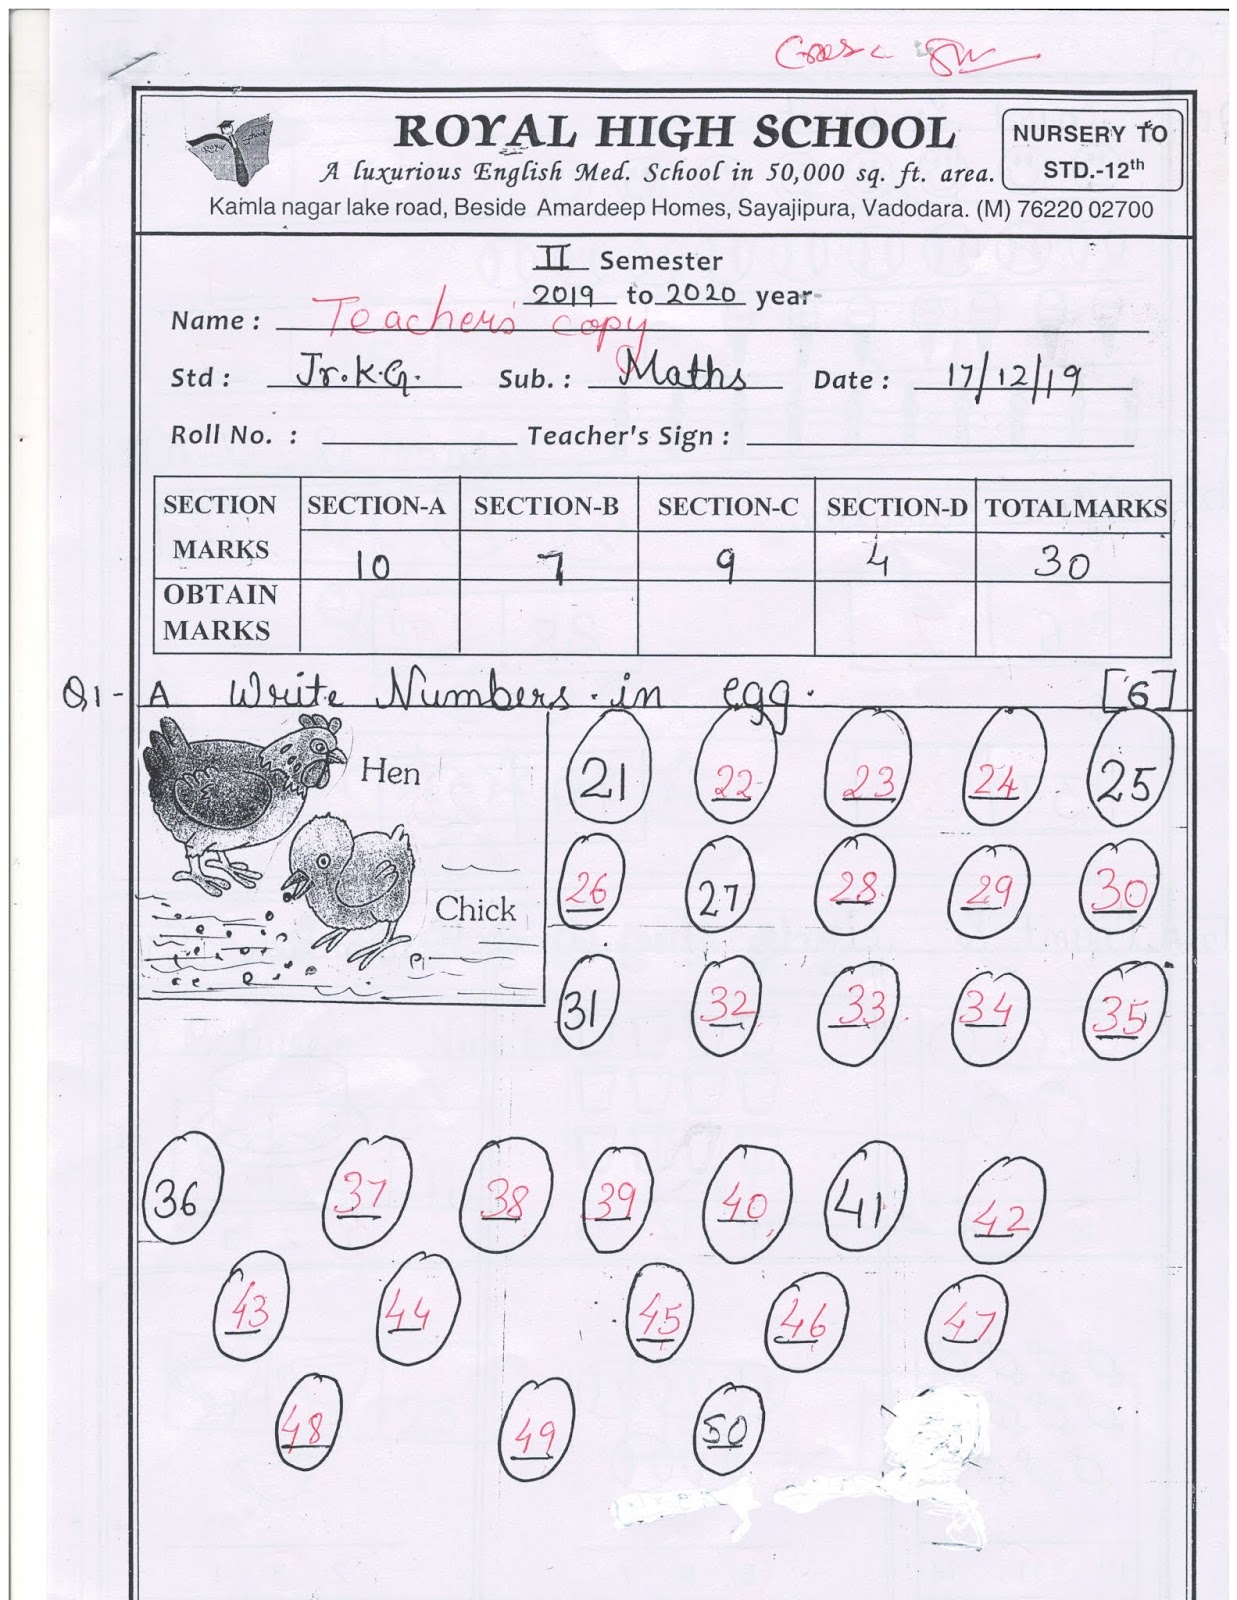 ROYAL HIGH SCHOOL
A luxurious English Med. School in 50,000 sq. ft. area.
NURSERY TO
STD.-12th
Kamla nagar lake road, Beside Amardeep Homes, Sayajipura, Vadodara. (M) 76220 02700
II Semester
2019 to 2020 year
Name : Teacher's copy
Std : Jr.K.G. Sub. : Maths Date : 17/12/19
Roll No. : Teacher's Sign :
SECTION SECTION-A SECTION-B SECTION-C SECTION-D TOTAL MARKS
MARKS 10 7 9 4 30
OBTAIN
MARKS
Q1- A Write Numbers in egg. [6]
Hen
Chick
21 22 23 24 25
26 27 28 29 30
31 32 33 34 35
36 37 38 39 40 41 42
43 44 45 46 47
48 49 50